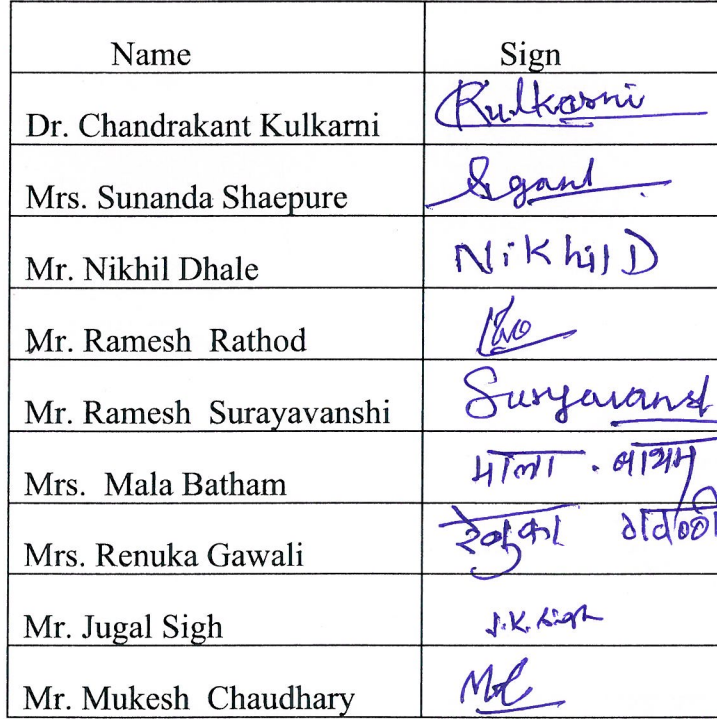 Name Sign
Dr. Chandrakant Kulkarni Kulkarni
Mrs. Sunanda Shaepure
Mr. Nikhil Dhale Nikhil D
Mr. Ramesh Rathod
Mr. Ramesh Surayavanshi Suryavanshi
Mrs. Mala Batham माला . बाथम
Mrs. Renuka Gawali रेणुका गवळी
Mr. Jugal Sigh J.K. Sigh
Mr. Mukesh Chaudhary